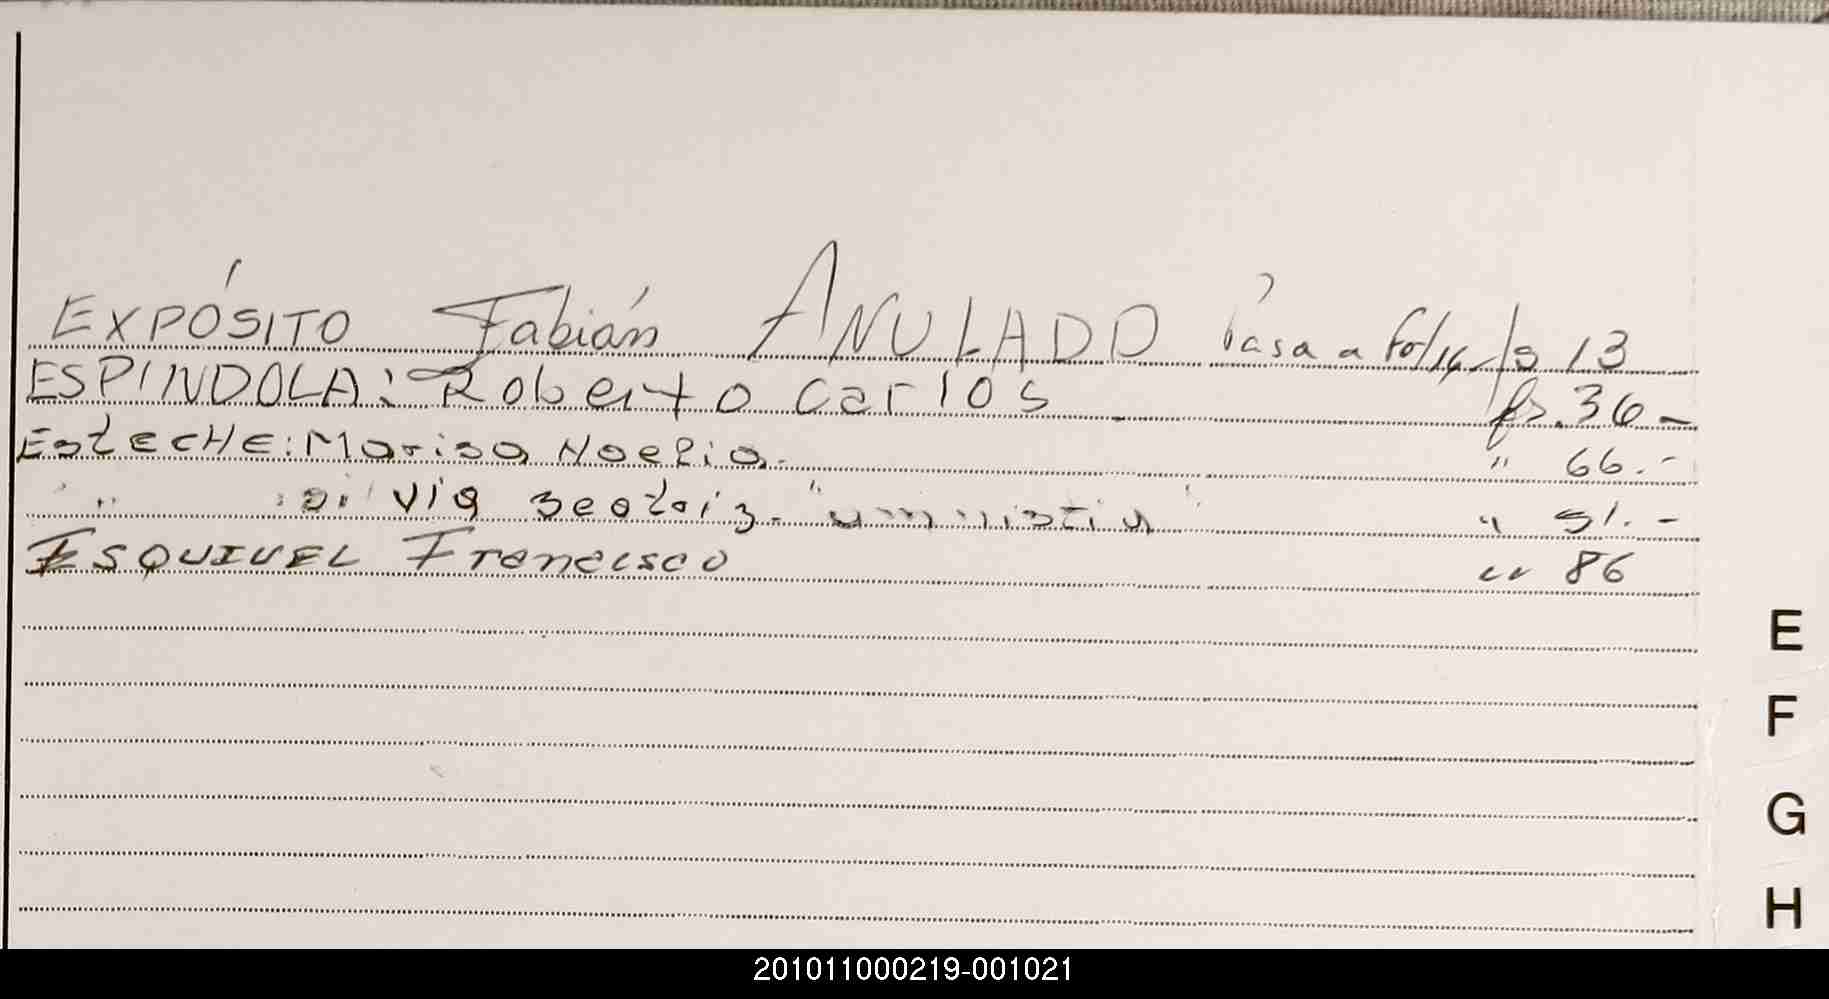 EXPÓSITO Fabián ANULADO Pasa a fo/14 /s 13
ESPINDOLA: Roberto Carlos fs. 36-
EstecHE: Marisa Noelia. " 66.-
" " : Silvia Beatriz. " 51.-
ESQUIVEL Francisco " 86
E
F
G
H
201011000219-001021